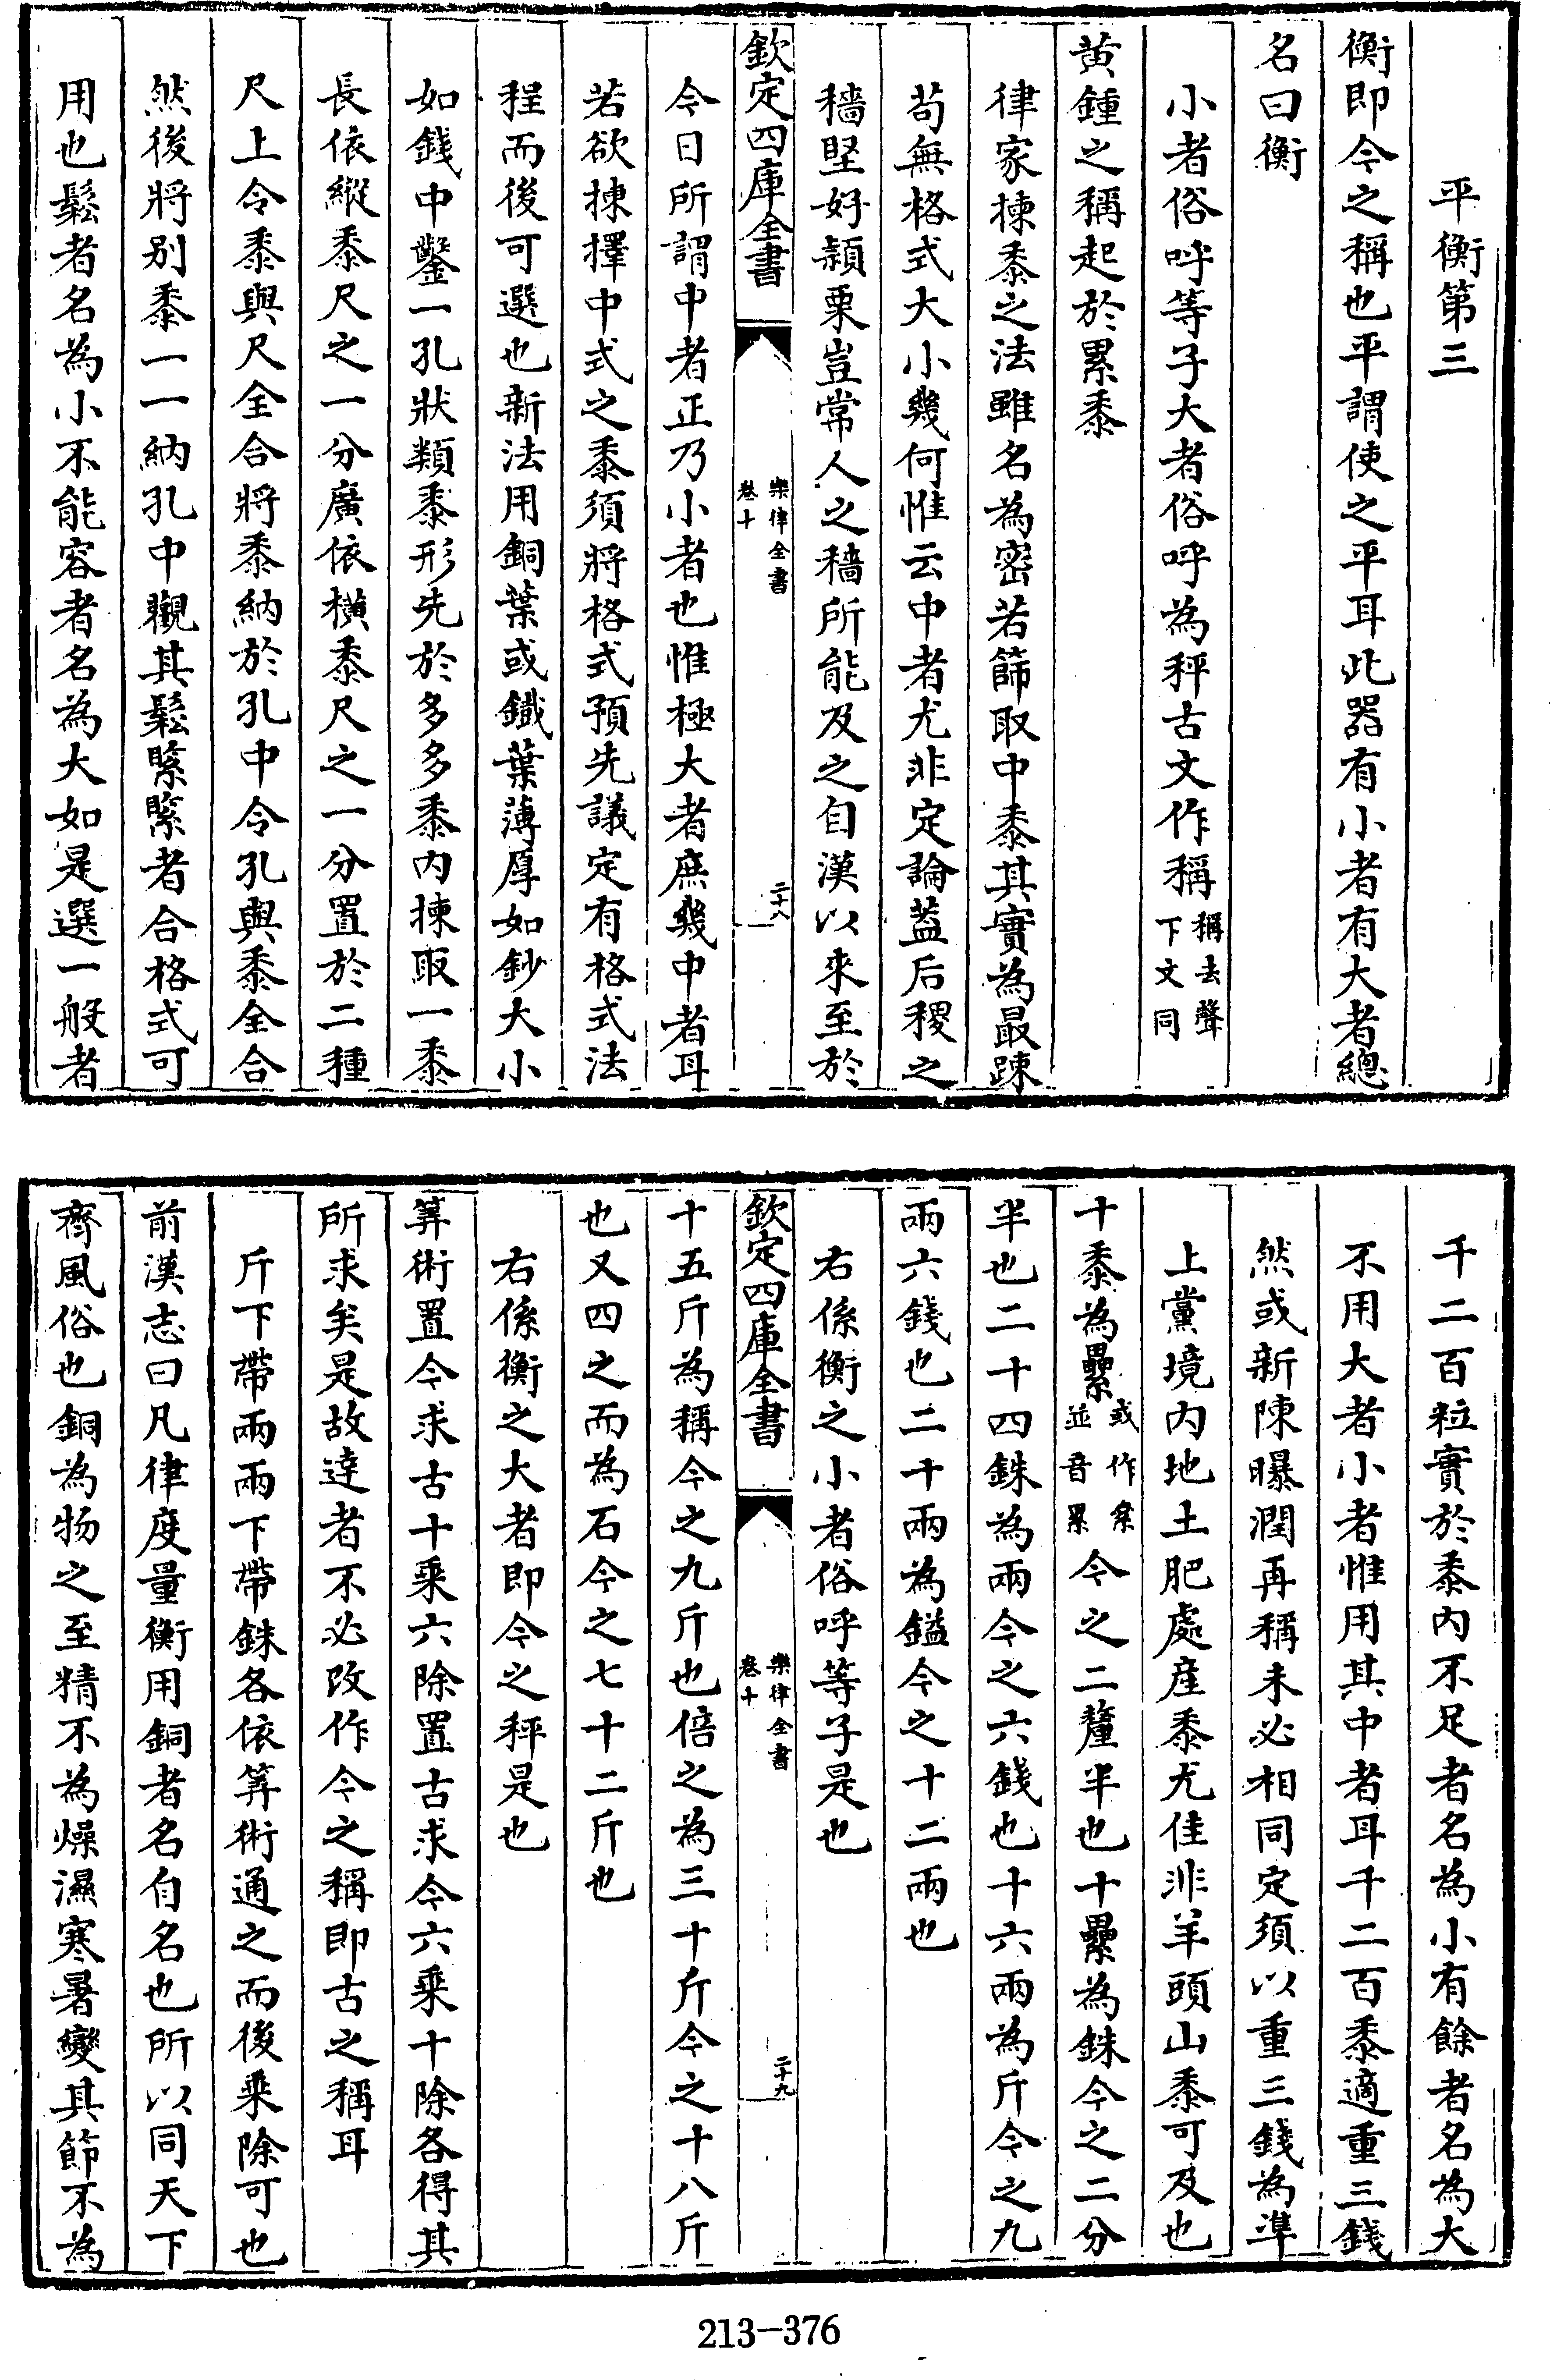 平衡第三
衡即今之稱也平謂使之平耳此器有小者有大者總
名曰衡
小者俗呼等子大者俗呼為秤古文作稱稱去聲下文同
黄鍾之稱起於累黍
律家揀黍之法雖名為密若篩取中黍其實為最踈
苟無格式大小幾何惟云中者尤非定論葢后稷之
穡堅好穎栗豈常人之穡所能及之自漢以來至於
欽定四庫全書
樂律全書
卷十
二十八
今日所謂中者正乃小者也惟極大者庶幾中者耳
若欲揀擇中式之黍須將格式預先議定有格式法
程而後可選也新法用銅葉或鐵葉薄厚如鈔大小
如錢中鑿一孔狀類黍形先於多多黍内揀取一黍
長依縱黍尺之一分廣依横黍尺之一分置於二種
尺上令黍與尺全合將黍納於孔中令孔與黍全合
然後將别黍一一納孔中觀其鬆緊緊者合格式可
用也鬆者名為小不能容者名為大如是選一般者
千二百粒實於黍内不足者名為小有餘者名為大
不用大者小者惟用其中者耳千二百黍適重三錢
然或新陳曝潤再稱未必相同定須以重三錢為準
上黨境内地土肥處産黍尤佳非羊頭山黍可及也
十黍為纍或作絫並音累今之二釐半也十纍為銖今之二分
半也二十四銖為兩今之六錢也十六兩為斤今之九
兩六錢也二十兩為鎰今之十二兩也
右係衡之小者俗呼等子是也
欽定四庫全書
樂律全書
卷十
二十九
十五斤為稱今之九斤也倍之為三十斤今之十八斤
也又四之而為石今之七十二斤也
右係衡之大者即今之秤是也
筭術置今求古十乘六除置古求今六乘十除各得其
所求矣是故逹者不必改作今之稱即古之稱耳
斤下帶兩兩下帶銖各依筭術通之而後乘除可也
前漢志曰凡律度量衡用銅者名自名也所以同天下
齊風俗也銅為物之至精不為燥濕寒暑變其節不為
213-376